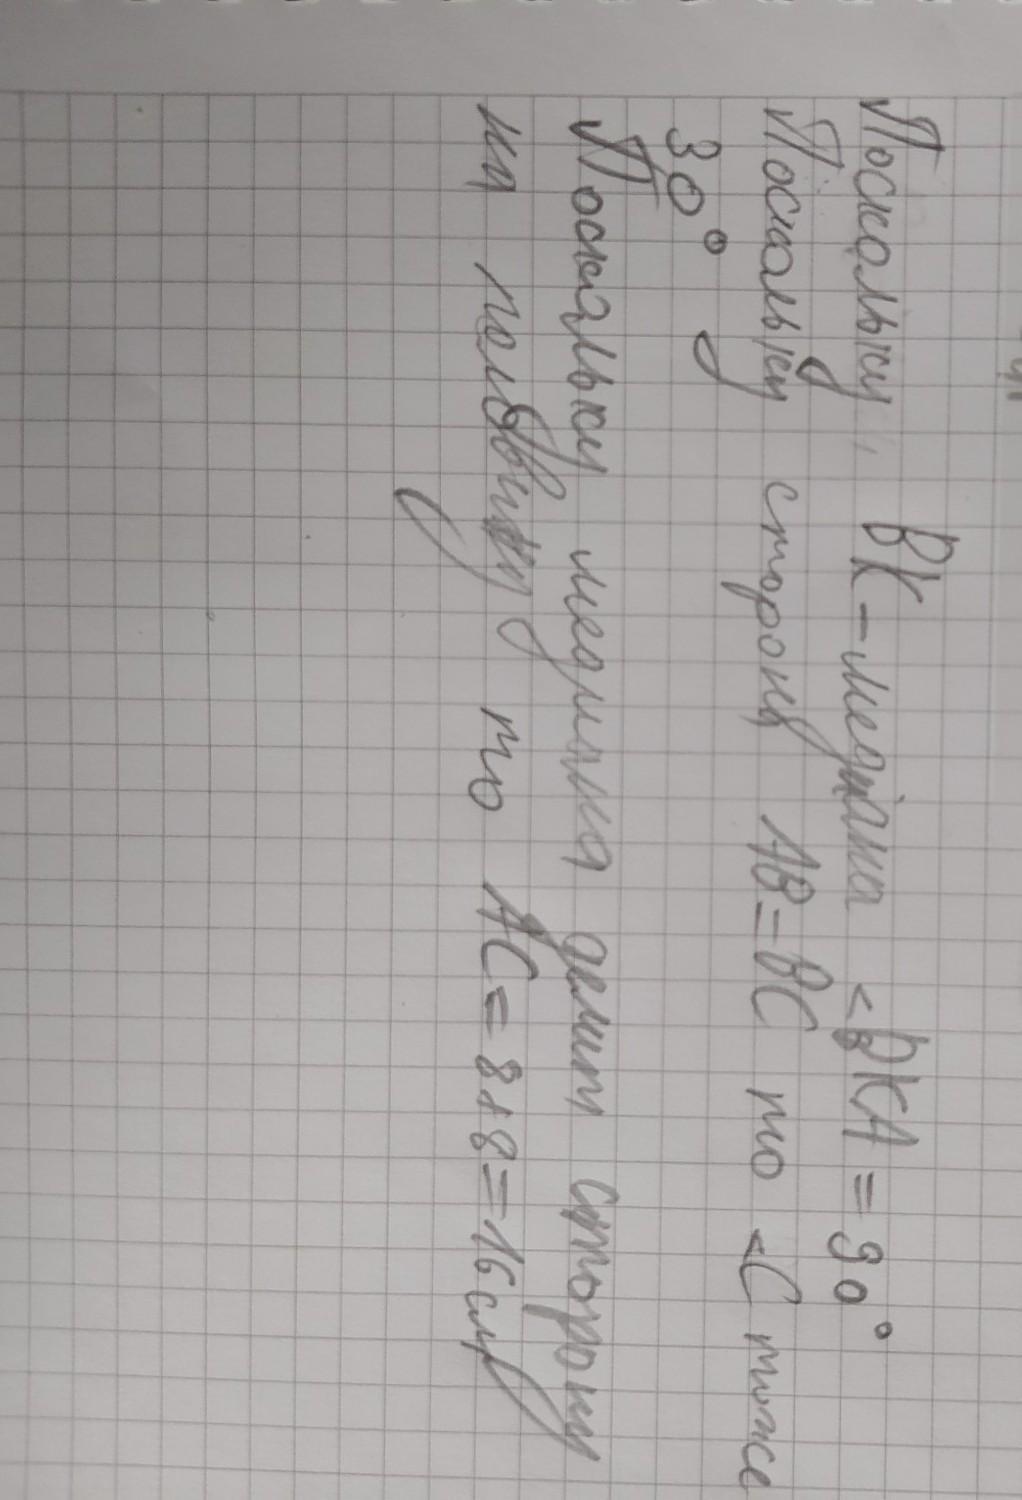 Поскольку BK – медиана <BKA = 90°
Поскольку стороны AB = BC то <C тоже
30°
Поскольку медиана делит сторону
на половину то AC = 8+8 = 16 см